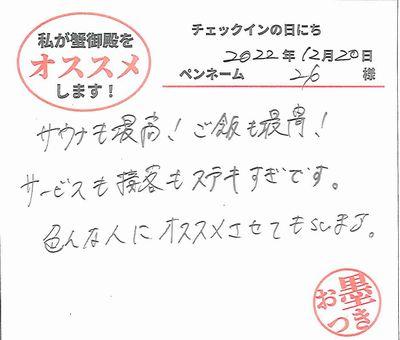 私が蟹御殿を
オススメ
します！
チェックインの日にち
2022年12月20日
ペンネーム 26 様
サウナも最高！ご飯も最高！
サービスも接客もステキすぎです。
色んな人にオススメさせてもらいます。
お墨
つき